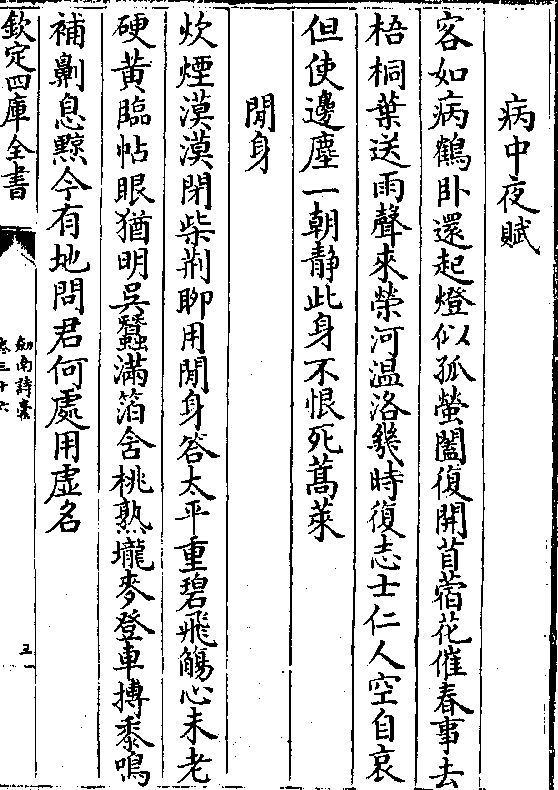 病中夜賦
客如病鶴卧還起燈似孤螢闔復開苜蓿花催春事去
梧桐葉送雨聲來榮河温洛幾時復志士仁人空自哀
但使邊塵一朝静此身不恨死蒿萊
閒身
炊煙漠漠閉柴荆聊用閒身答太平重碧飛觴心未老
硬黄臨帖眼猶明吴蠶滿箔舍桃熟壠麥登車搏黍鳴
補劓息黥今有地問君何處用虚名
欽定四庫全書
劍南詩稾
卷三十六